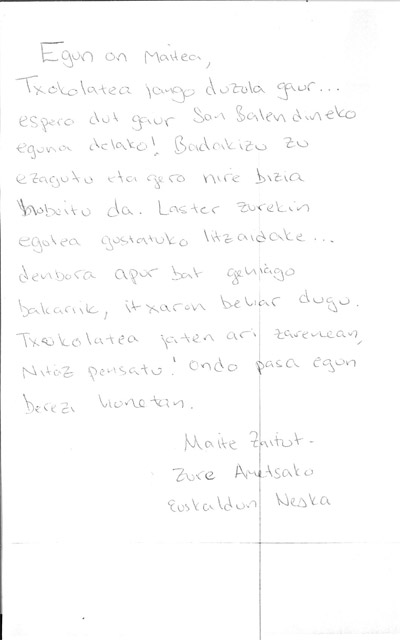 Egun on Maitea,
Txokolatea jango duzula gaur...
espero dut gaur San Balendineko
eguna delako! Badakizu zu
ezagutu eta gero nire bizia
hobeitu da. Laster zurekin
egotea gustatuko litzaidake...
denbora apur bat gehiago
bakarrik, itxaron behar dugu.
Txokolatea jaten ari zarenean,
Nitaz pensatu! ondo pasa egun
berezi honetan.
Maite Zaitut.
Zure Ametsako
Euskaldun Neska